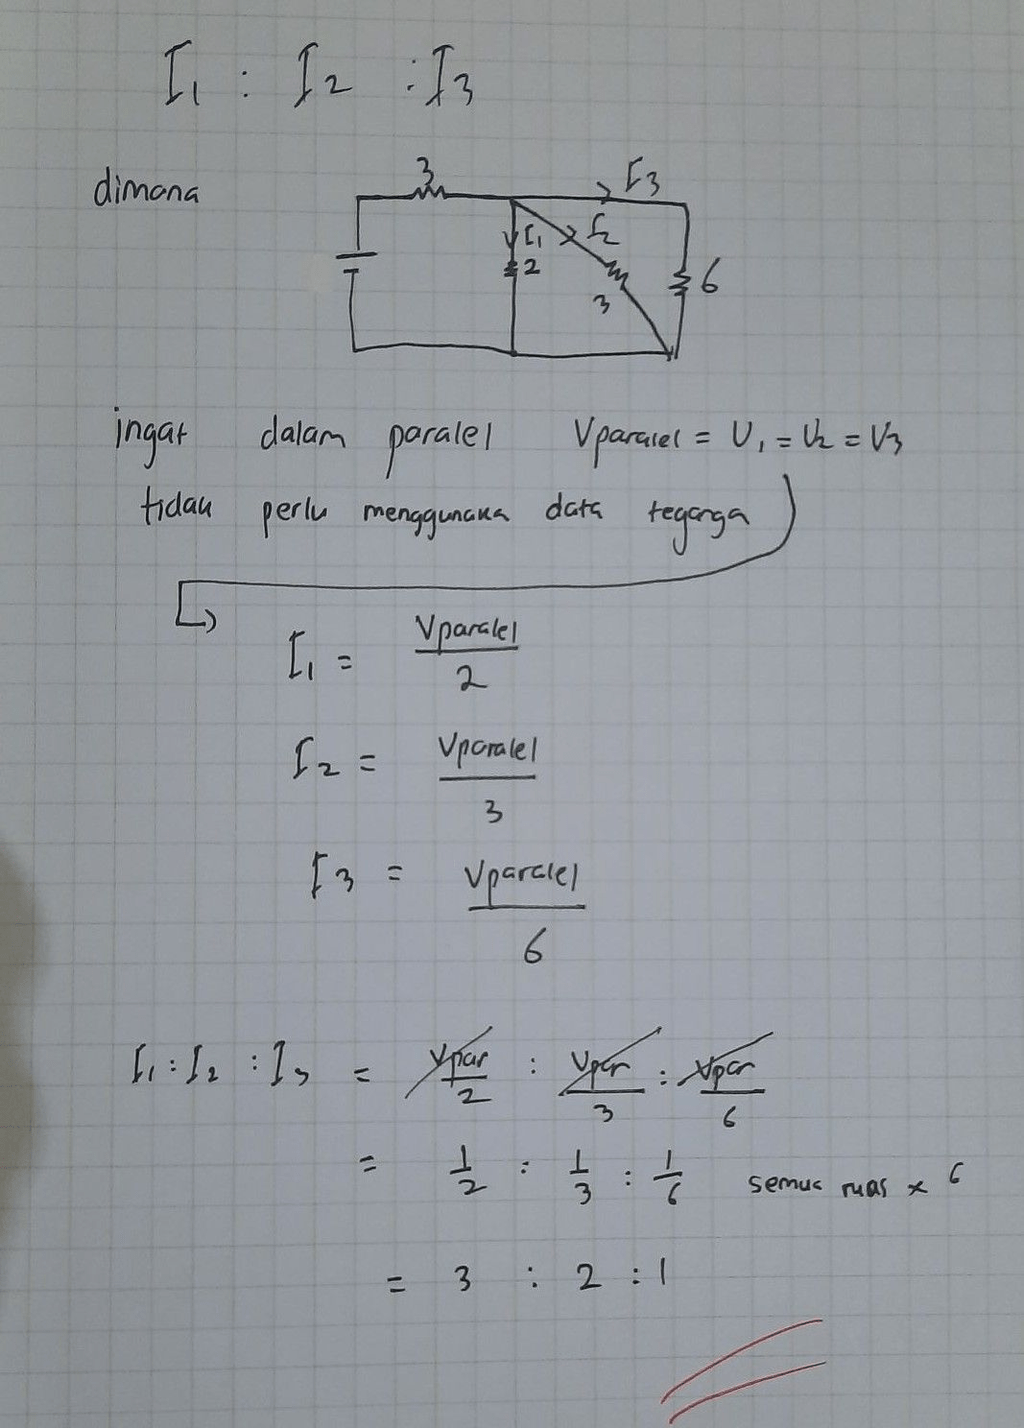 I1 : I2 : I3
dimana
3
I3
I1
I2
2
3
6
ingat dalam paralel Vparalel = V1 = V2 = V3
tidak perlu menggunaka data teganga
I1 = Vparalel / 2
I2 = Vparalel / 3
I3 = Vparalel / 6
I1 : I2 : I3 = Vpar / 2 : Vpar / 3 : Vpar / 6
= 1/2 : 1/3 : 1/6 semua ruas x 6
= 3 : 2 : 1